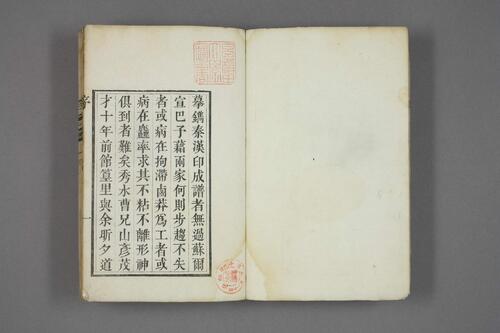 摹鐫秦漢印成譜者無過蘇爾
宣巴予藉兩家何則步趨不失
者或病在拘滯鹵莽為工者或
病在麤率求其不粘不離形神
俱到者難矣秀水曹兄山彥茂
才十年前館篁里與余昕夕道
序
一